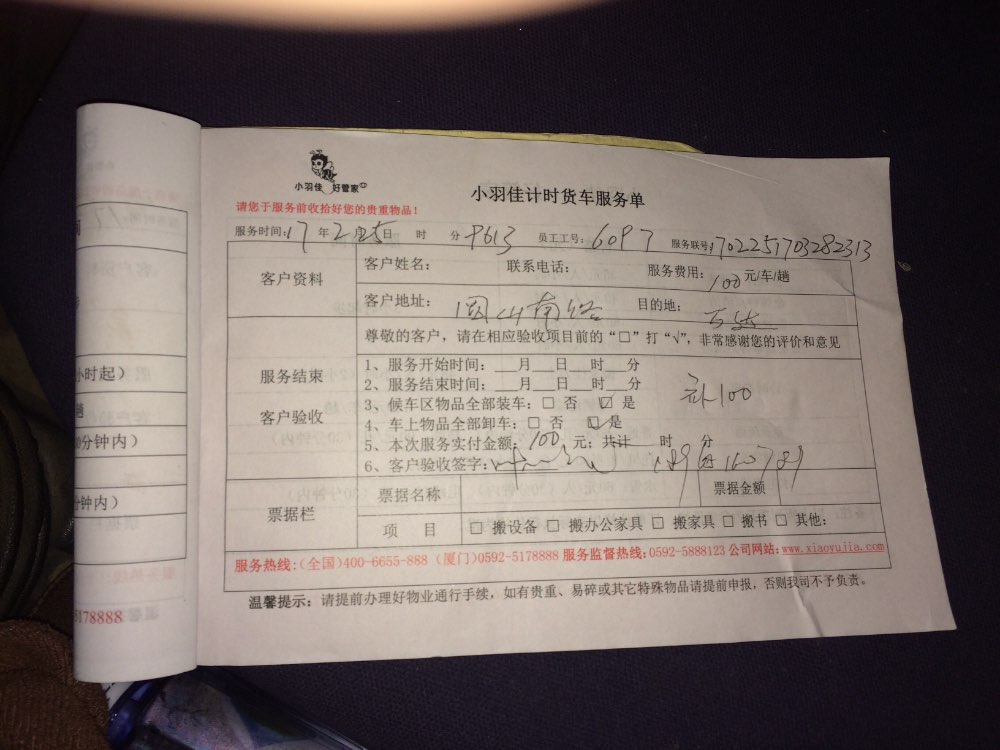 小羽佳 好管家
小羽佳计时货车服务单
请您于服务前收拾好您的贵重物品！
服务时间：17年2月25日 时 分 员工工号：6097 服务联号：702251703282313
客户资料
客户姓名： 联系电话： 服务费用：100元/车/趟
客户地址： 目的地：
服务结束
客户验收
尊敬的客户，请在相应验收项目前的“□”打“√”，非常感谢您的评价和意见
1、服务开始时间：__月__日__时__分
2、服务结束时间：__月__日__时__分
3、候车区物品全部装车：□ 否 ☑ 是
4、车上物品全部卸车：□ 否 ☑ 是
100
5、本次服务实付金额：100元；共计 时 分
6、客户验收签字：
票据栏
票据名称 票据金额
项 目 □ 搬设备 □ 搬办公家具 □ 搬家具 □ 搬书 □ 其他：
服务热线：（全国）400-6655-888（厦门）0592-5178888 服务监督热线：0592-5888123 公司网站：www.xiaoyujia.com
温馨提示：请提前办理好物业通行手续，如有贵重、易碎或其它特殊物品请提前申报，否则我司不予负责。
小时起）
趟
0分钟内）
分钟内）
5178888